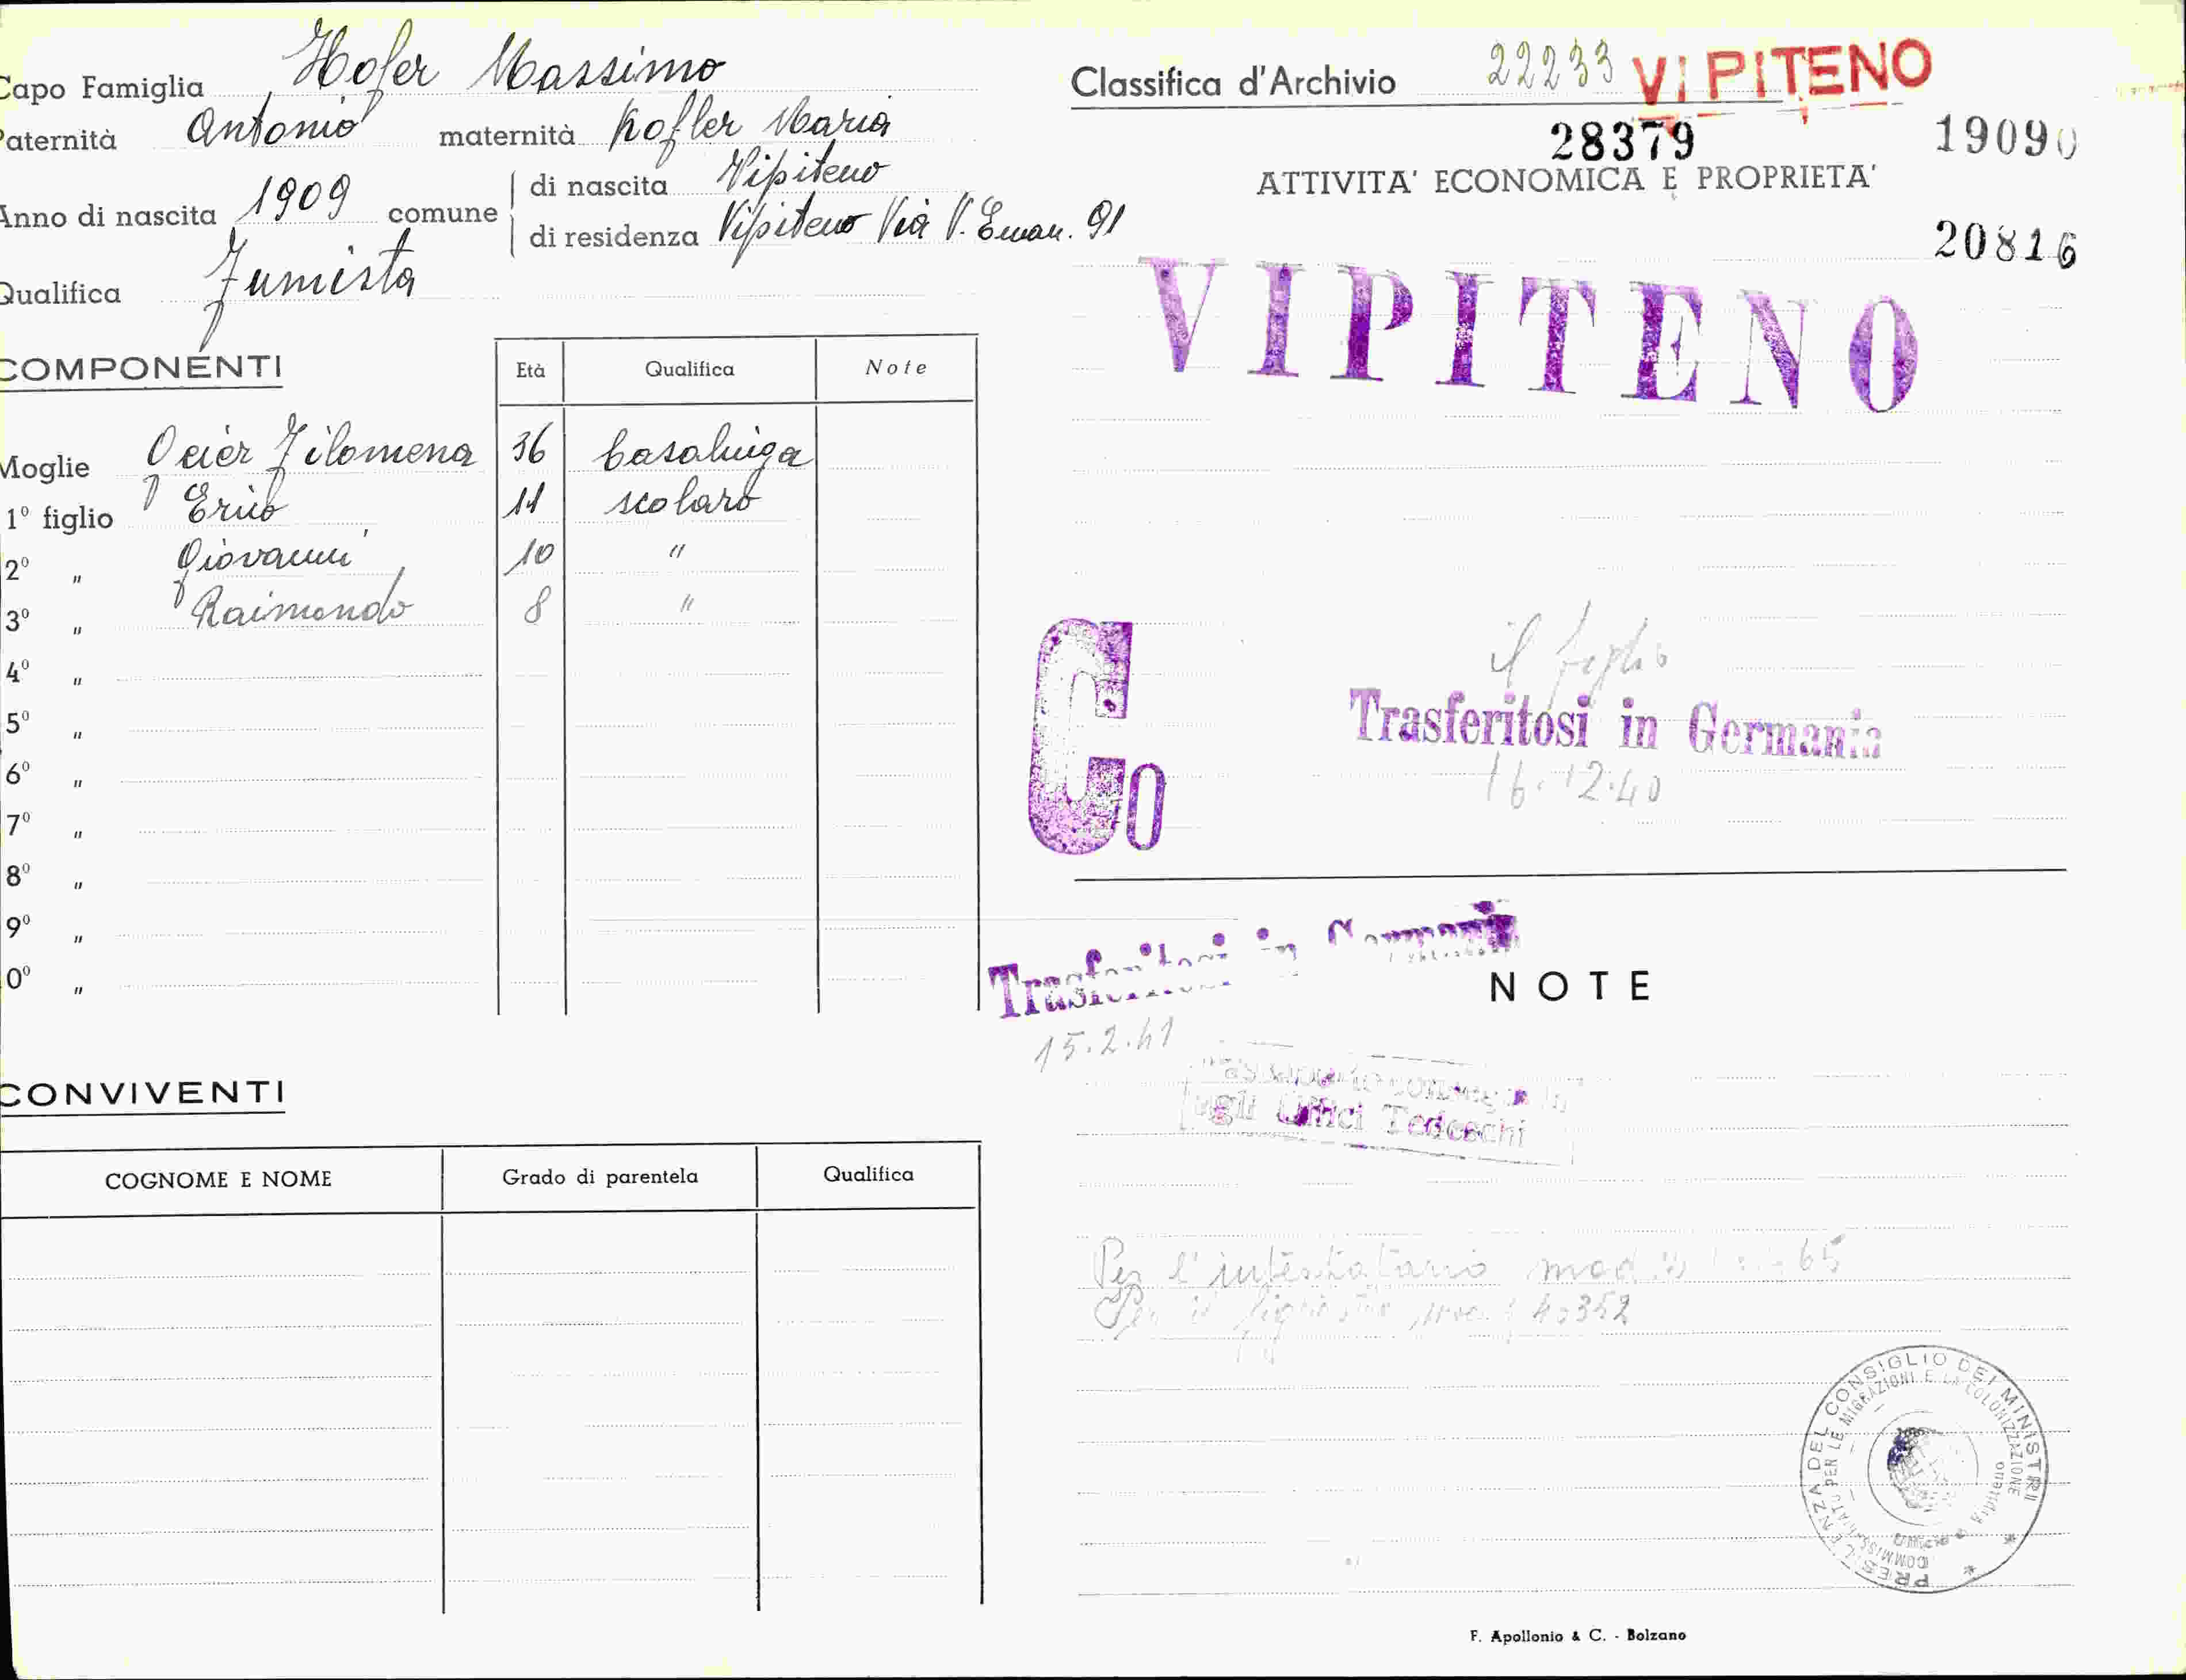 Capo Famiglia Hofer Massimo
Paternità Antonio maternità Kofler Maria
Anno di nascita 1909 comune di nascita Vipiteno
di residenza Vipiteno Via V. Eman. 91
Qualifica Fumista
COMPONENTI
Età Qualifica Note
Moglie Filomena 36 casalinga
1º figlio Erico 11 scolaro
2º " Giovanni 10 "
3º " Raimondo 8 "
4º "
5º "
6º "
7º "
8º "
9º "
0º "
CONVIVENTI
COGNOME E NOME Grado di parentela Qualifica
Classifica d'Archivio 22233 VIPITENO
28379 19090
ATTIVITA' ECONOMICA E PROPRIETA'
20816
VIPITENO
il figlio
Co
Trasferitosi in Germania
16.12.40
Trasferitosi in Germania
NOTE
15.2.41
agli Uffici Tedeschi
Per l'intestatario mod. 65
Per il figlio 40352
PRESIDENZA DEL CONSIGLIO DEI MINISTRI
COMMISSARIATO PER LE MIGRAZIONI E LA COLONIZZAZIONE
Ufficio di Vipiteno
F. Apollonio & C. - Bolzano